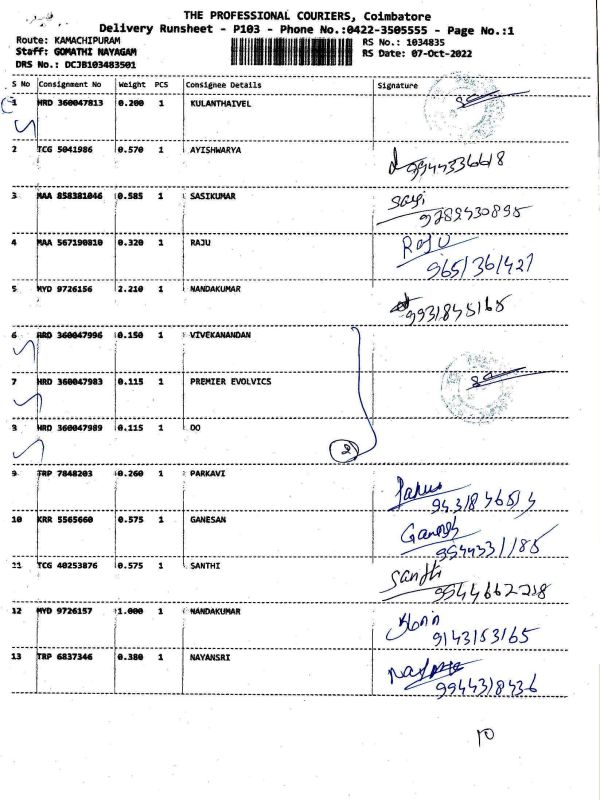 THE PROFESSIONAL COURIERS, Coimbatore
Delivery Runsheet - P103 - Phone No.:0422-3505555 - Page No.:1
Route: KAMACHIPURAM RS No.: 1034835
Staff: GOMATHI NAYAGAM RS Date: 07-Oct-2022
DRS No.: DCJB103483501
S No Consignment No Weight PCS Consignee Details Signature
1 HRD 360047813 0.200 1 KULANTHAIVEL
2 TCG 5041986 0.570 1 AYISHWARYA
3 MAA 858381046 0.585 1 SASIKUMAR
9289430895
4 MAA 567190810 0.320 1 RAJU RAJU
9651361427
5 MYD 9726156 2.210 1 NANDAKUMAR
9931845165
6 HRD 360047996 0.150 1 VIVEKANANDAN
7 HRD 360047983 0.115 1 PREMIER EVOLVICS
8 HRD 360047989 0.115 1 DO
2
9 TRP 7848203 0.260 1 PARKAVI
10 KRR 5565660 0.575 1 GANESAN Ganesh
9944331185
11 TCG 40253876 0.575 1 SANTHI Santhi
9544662238
12 MYD 9726157 1.000 1 NANDAKUMAR
9143153165
13 TRP 6837346 0.380 1 NAYANSRI
9944318436
10